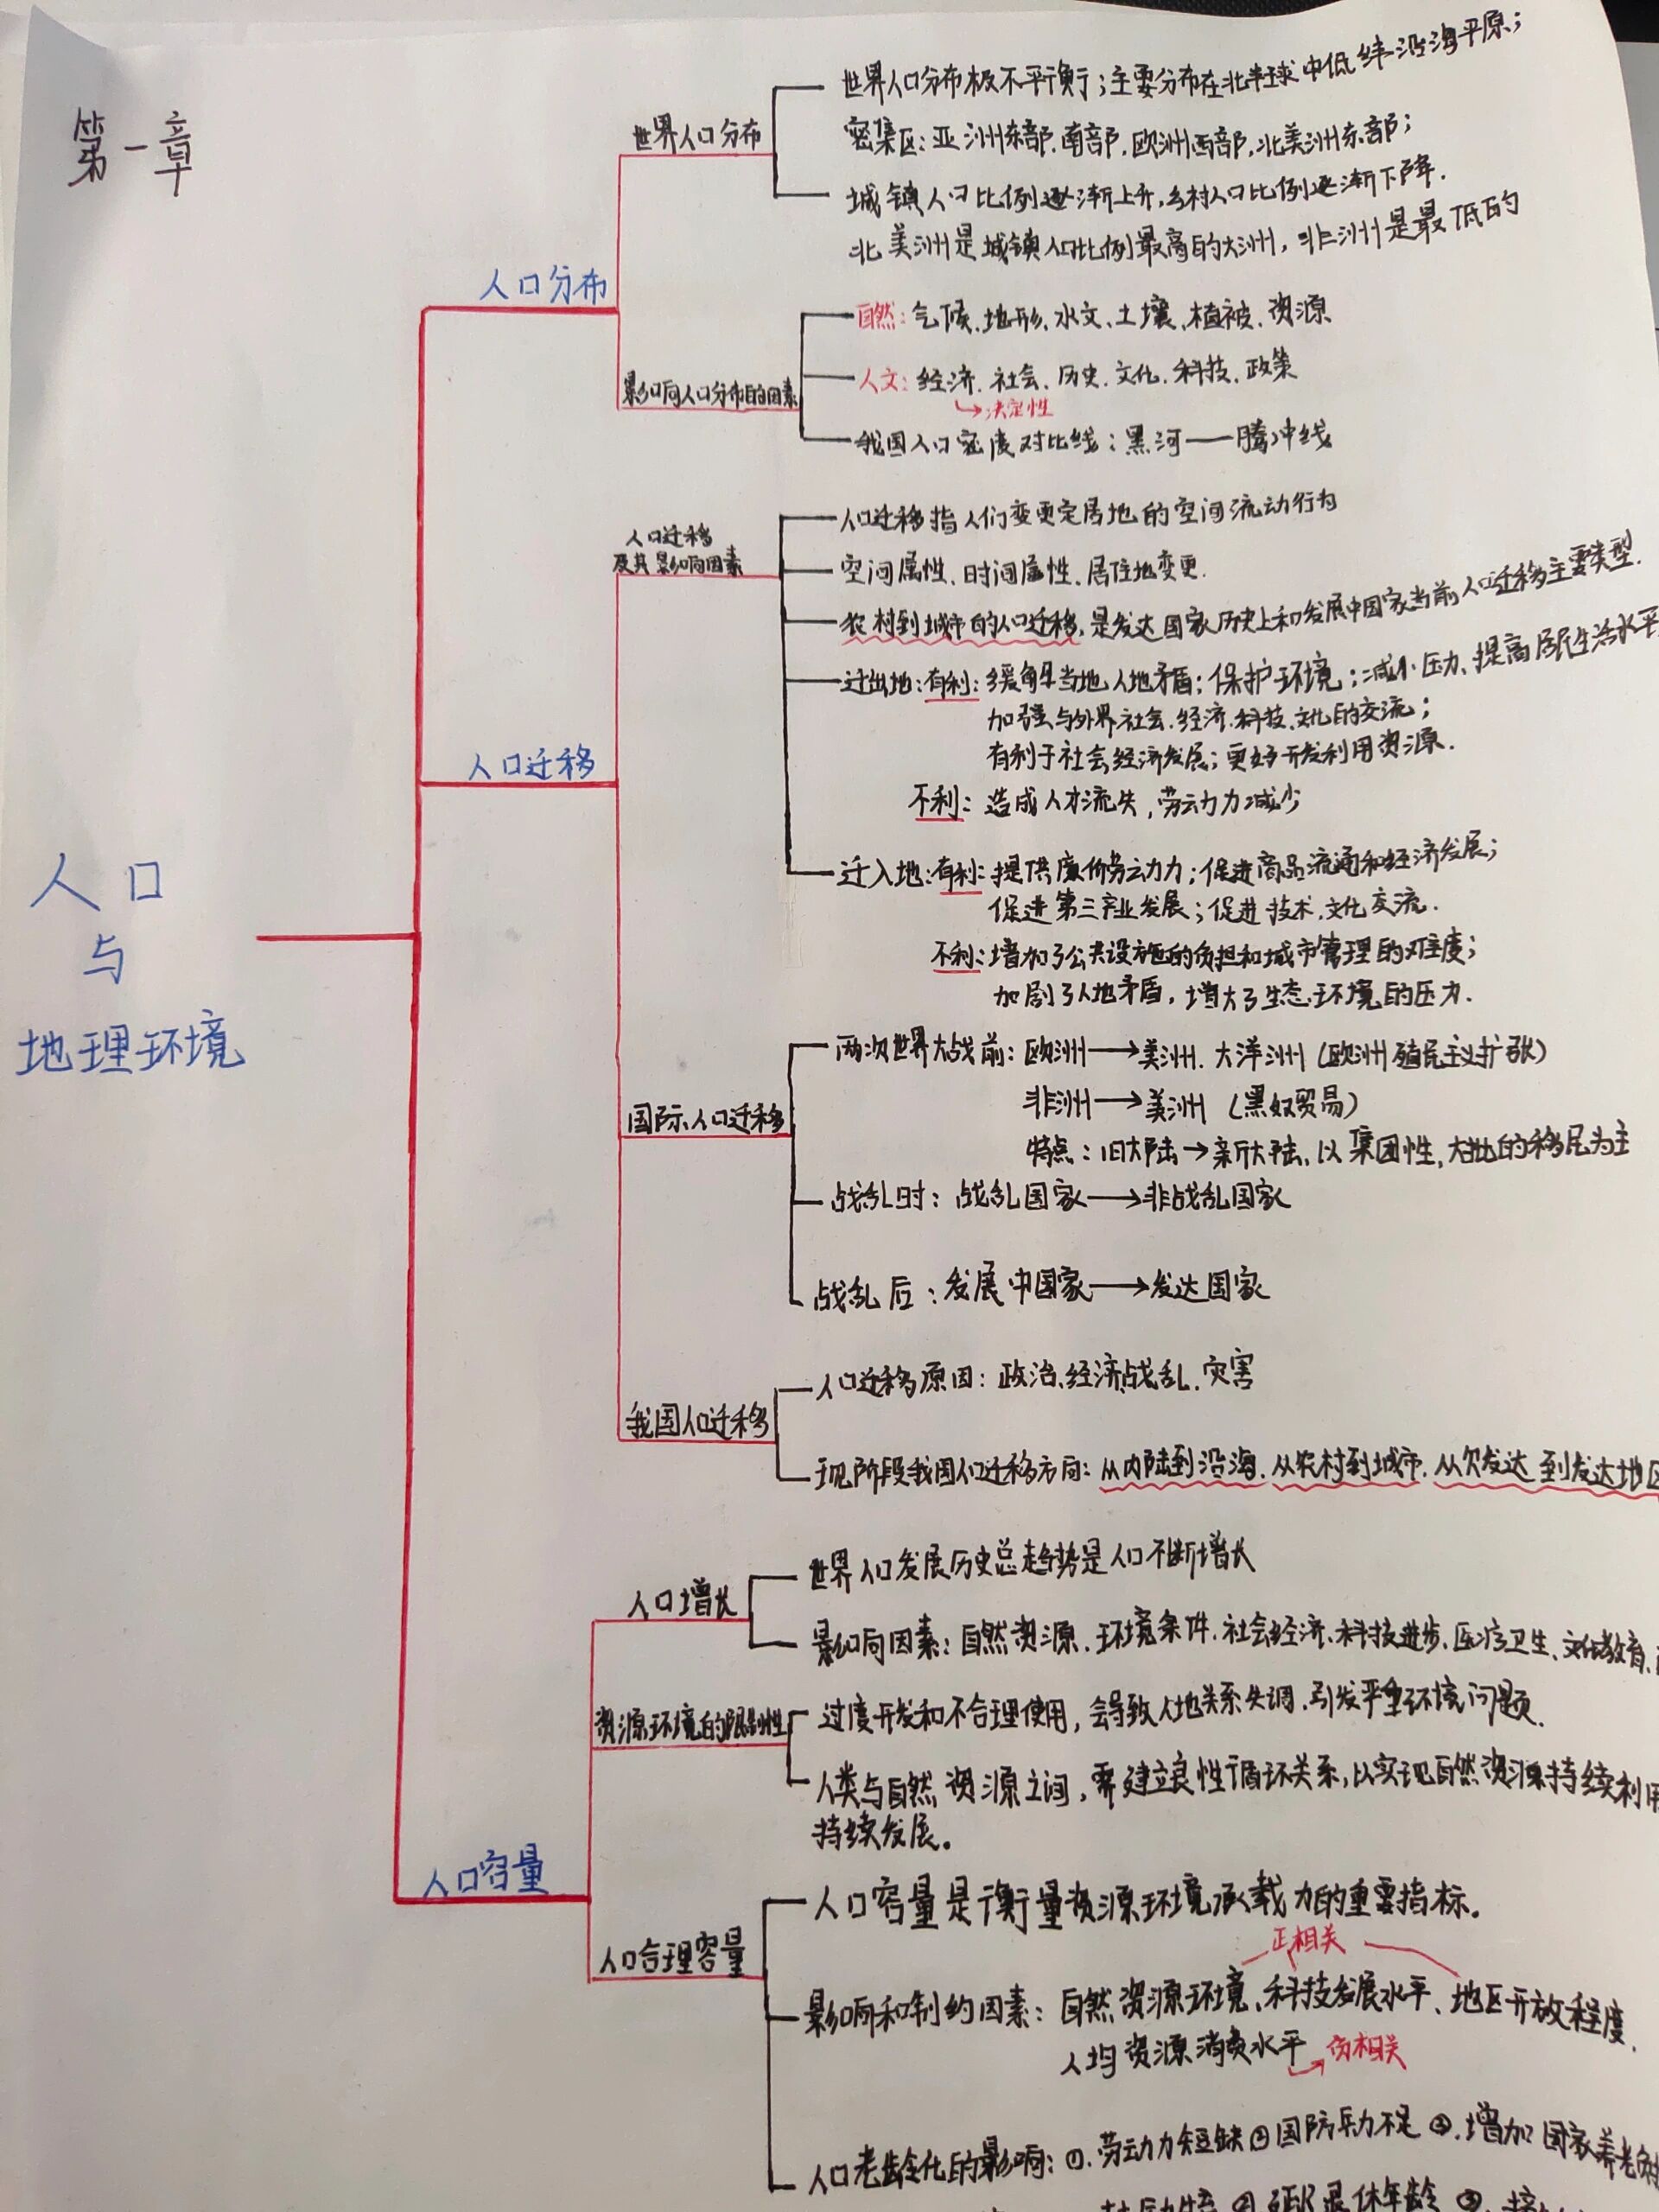 第一章
人口
与
地理环境
人口分布
世界人口分布
世界人口分布极不平衡；主要分布在北半球中低纬沿海平原；
密集区：亚洲东部、南部、欧洲西部、北美洲东部；
城镇人口比例逐渐上升，乡村人口比例逐渐下降．
北美洲是城镇人口比例最高的大洲，非洲是最低的
影响人口分布的因素
自然：气候、地形、水文、土壤、植被、资源
人文：经济、社会、历史、文化、科技、政策
决定性
我国人口密度对比线：黑河——腾冲线
人口迁移
人口迁移
及其影响因素
人口迁移指人们变更定居地的空间流动行为
空间属性、时间属性、居住地变更．
农村到城市的人口迁移，是发达国家历史上和发展中国家当前人口迁移主要类型．
迁出地：有利：缓解当地人地矛盾；保护环境；减小压力、提高居民生活水平
加强与外界社会、经济、科技、文化的交流；
有利于社会经济发展；更好开发利用资源．
不利：造成人才流失，劳动力减少
迁入地：有利：提供廉价劳动力；促进商品流通和经济发展；
促进第三产业发展；促进技术、文化交流．
不利：增加了公共设施的负担和城市管理的难度；
加剧了人地矛盾，增大了生态环境的压力．
国际人口迁移
两次世界大战前：欧洲→美洲、大洋洲（欧洲殖民主义扩张）
非洲→美洲（黑奴贸易）
特点：旧大陆→新大陆，以集团性，大批的移民为主
战乱时：战乱国家→非战乱国家
战乱后：发展中国家→发达国家
我国人口迁移
人口迁移原因：政治、经济、战乱、灾害
现阶段我国人口迁移方向：从内陆到沿海、从农村到城市、从欠发达到发达地区
人口容量
人口增长
世界人口发展历史总趋势是人口不断增长
影响因素：自然资源、环境条件、社会经济、科技进步、医疗卫生、文化教育、
资源环境的限制性
过度开发和不合理使用，会导致人地关系失调，引发严重环境问题．
人类与自然资源之间，需建立良性循环关系，以实现自然资源持续利用
持续发展。
人口合理容量
人口容量是衡量资源环境承载力的重要指标。
正相关
影响和制约因素：自然资源环境、科技发展水平、地区开放程度、
人均资源消费水平 → 负相关
人口老龄化的影响：①．劳动力短缺②国防兵力不足③．增加国家养老负
④延迟退休年龄